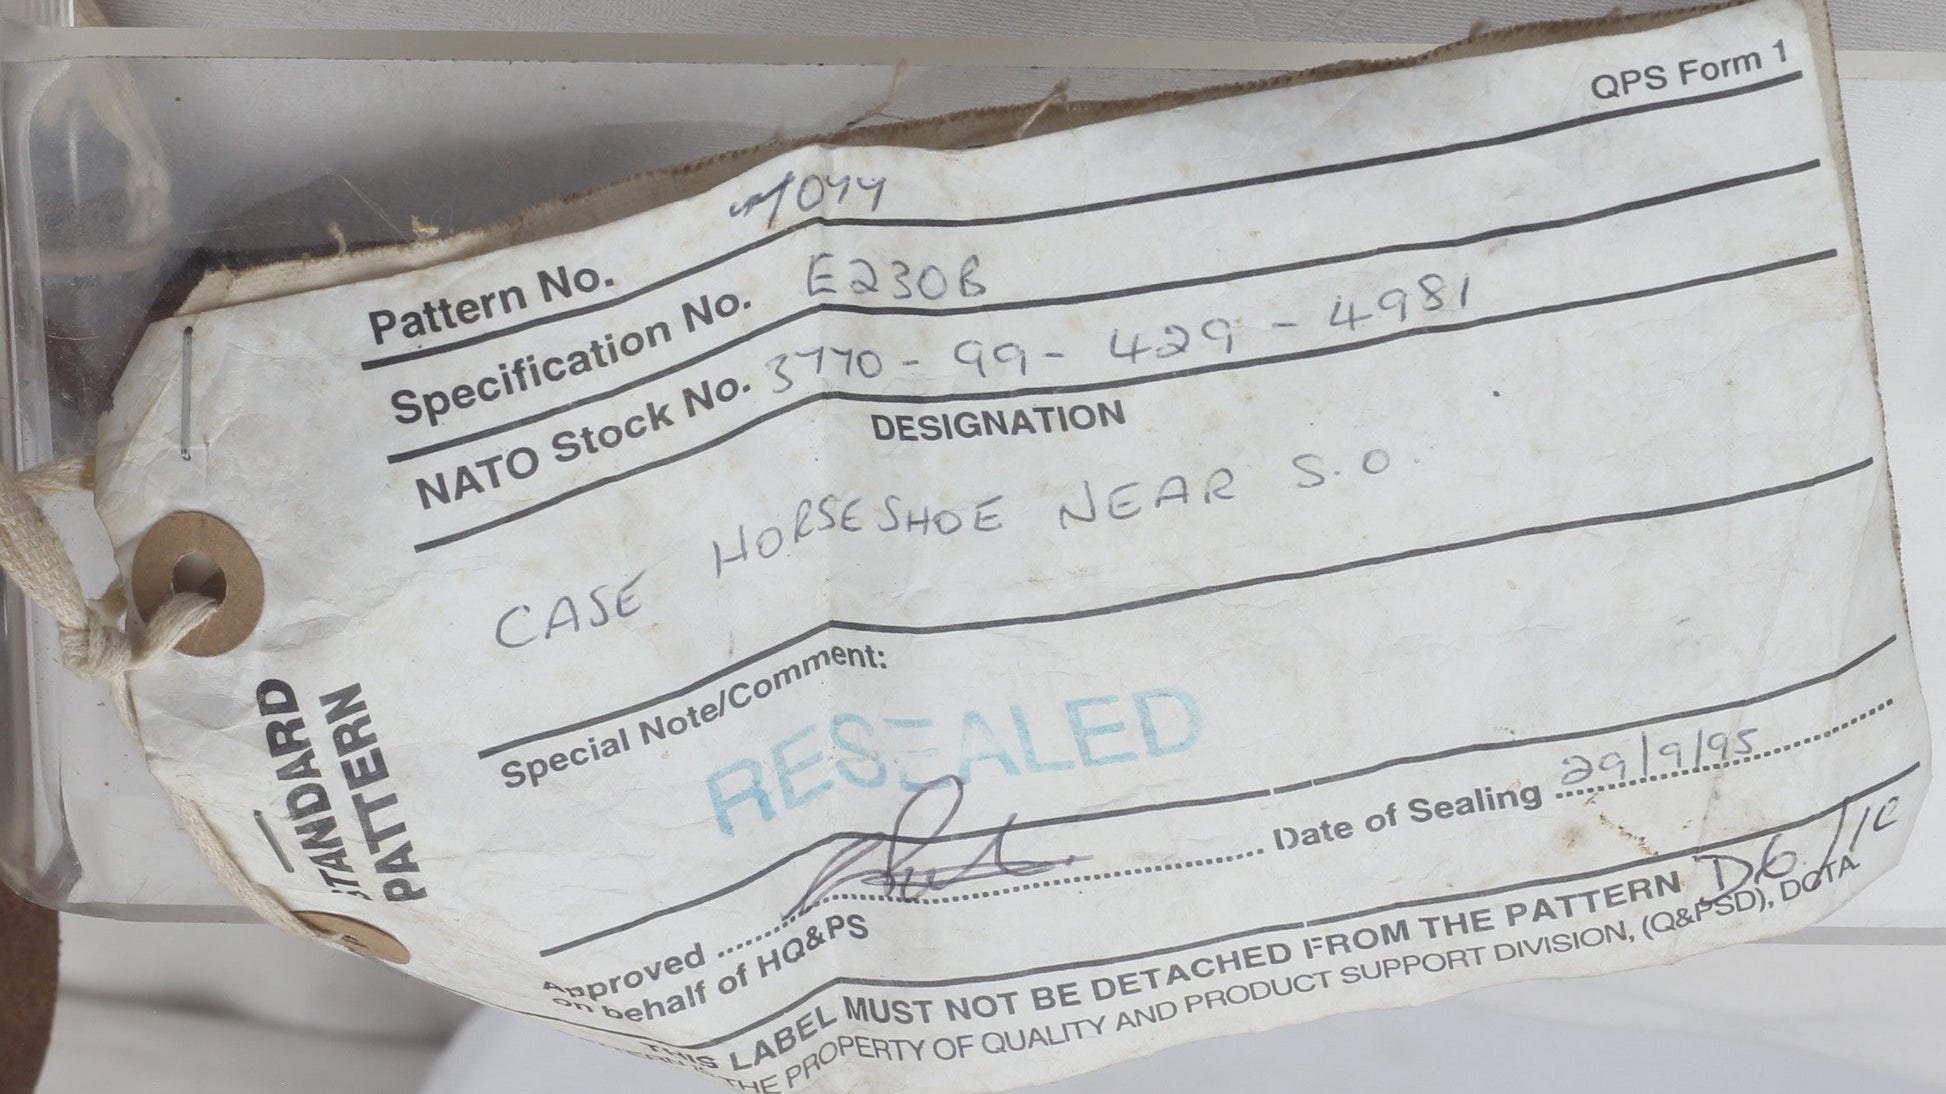 QPS Form 1
Pattern No.
Specification No. E230B
NATO Stock No. 3770-99-429-4981
DESIGNATION
CASE HORSESHOE NEAR S.O.
Special Note/Comment:
RESEALED
Approved .......... Date of Sealing 29/9/95
on behalf of HQ&PS
THIS LABEL MUST NOT BE DETACHED FROM THE PATTERN
THE PROPERTY OF QUALITY AND PRODUCT SUPPORT DIVISION, (Q&PSD), DCTA
STANDARD
PATTERN